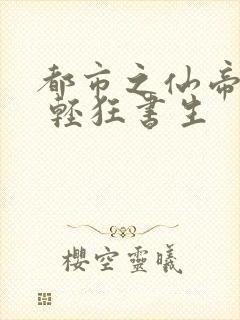 都市之仙帝
轻狂书生
樱空灵曦